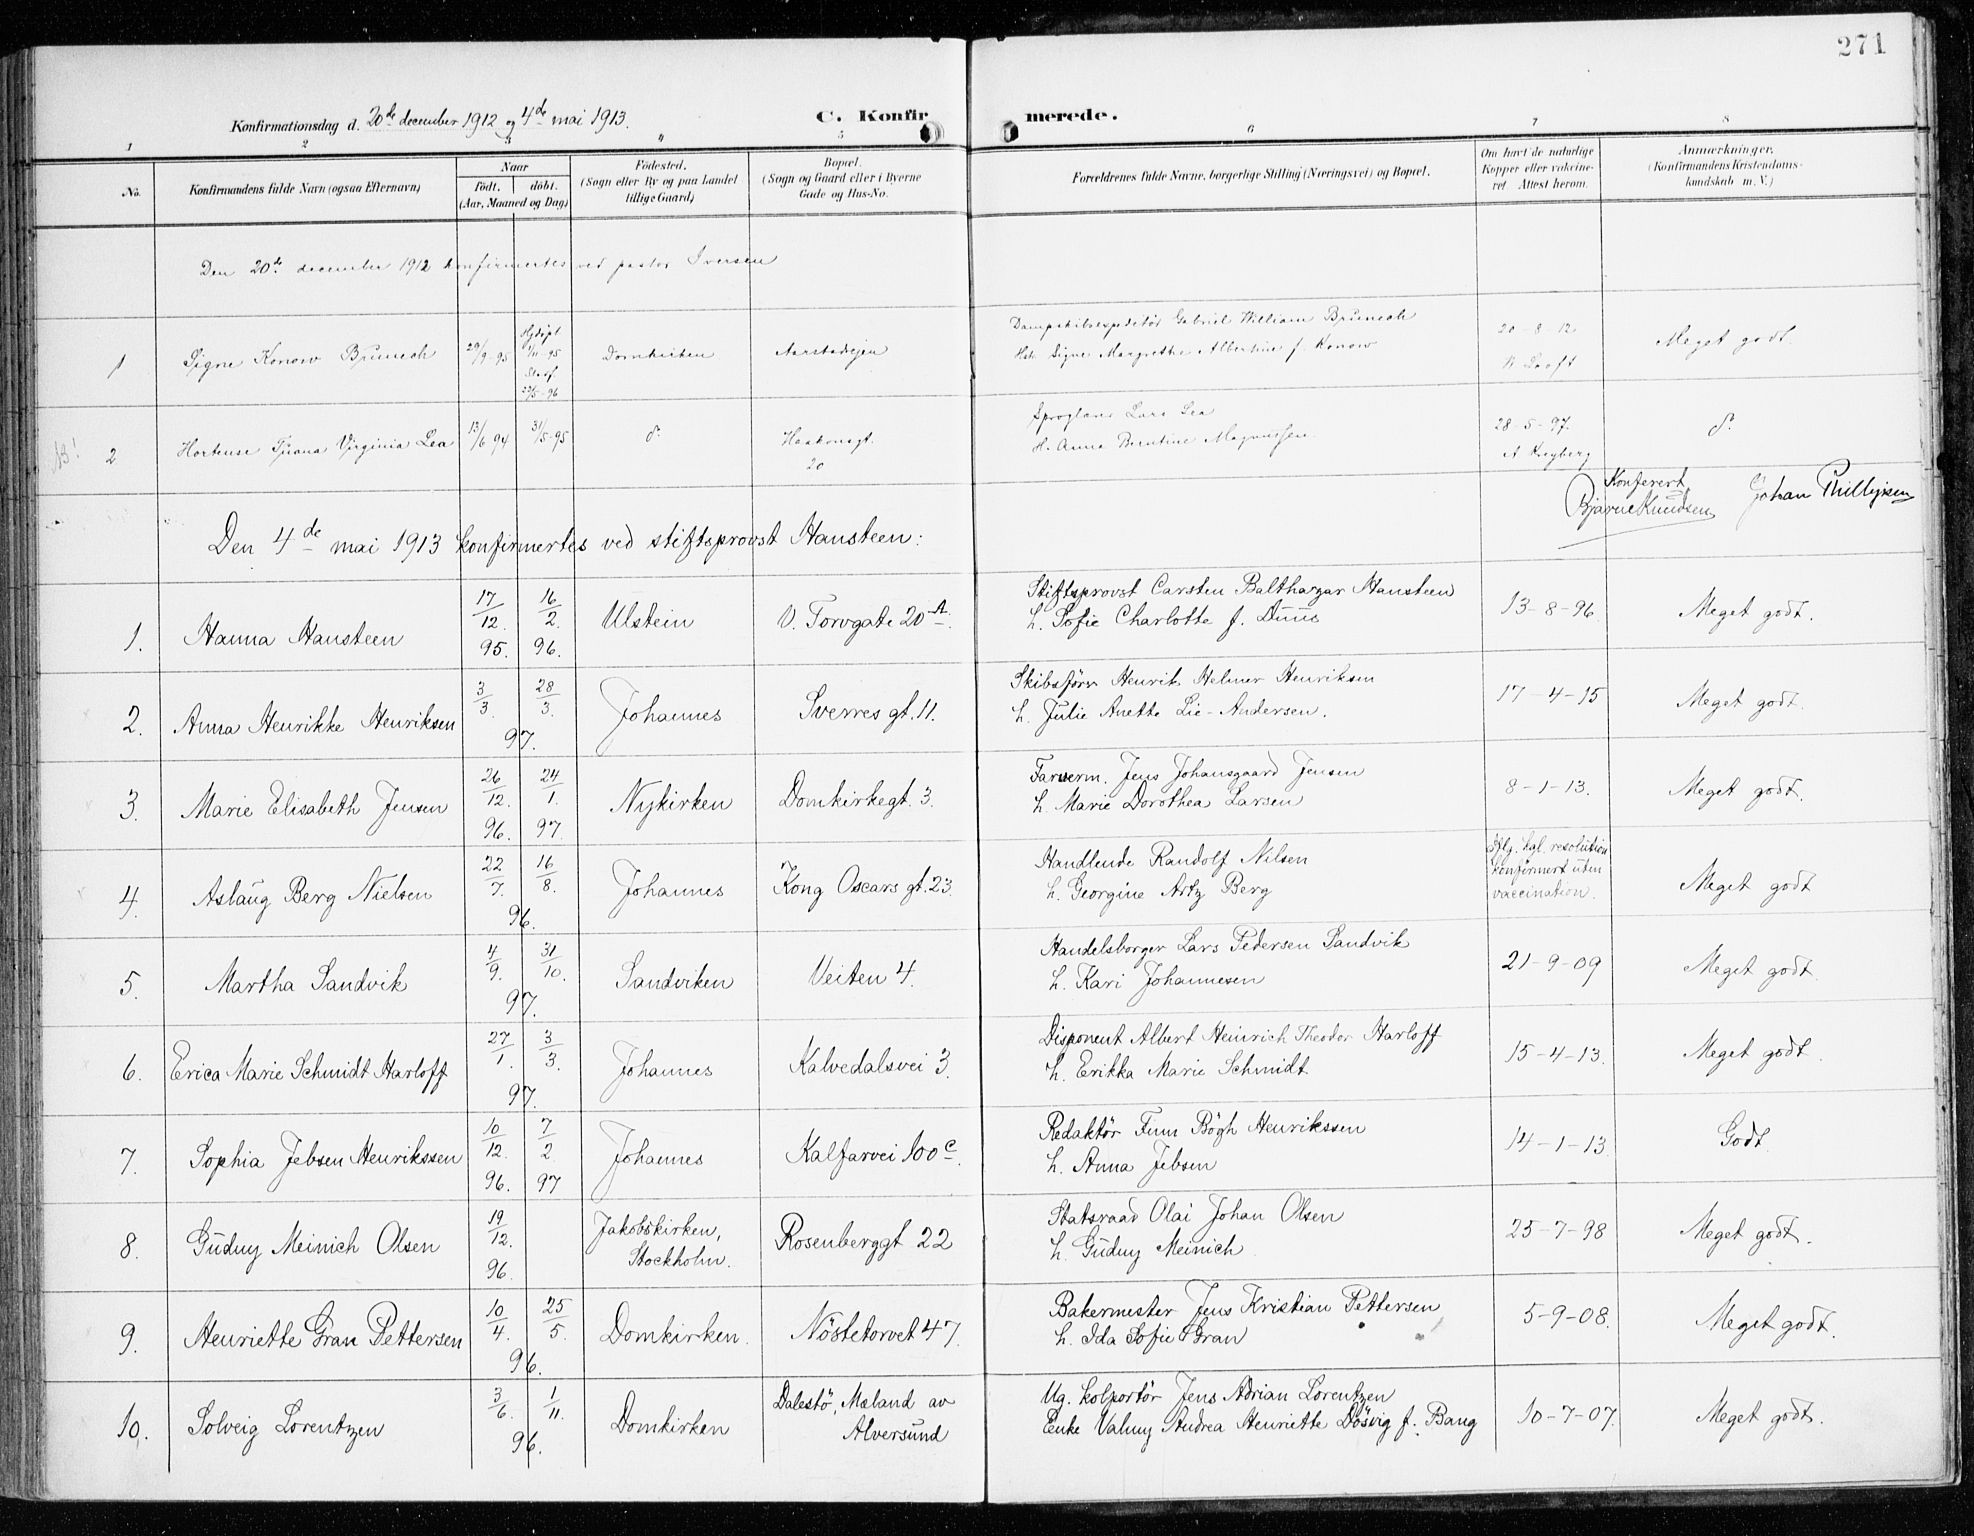 271
Konfirmationsdag d. 20de december 1912 og 4de mai 1913.
C. Konfirmerede.
1 2 3 4 5 6 7 8
No.
Konfirmandens fulde Navn (ogsaa Efternavn)
Naar
födt. döbt.
(Aar, Maaned og Dag)
Födested.
(Sogn eller By og paa Landet
tillige Gaard)
Bopæl.
(Sogn og Gaard eller i Byerne
Gade og Hus-No.
Forældrenes fulde Navne, borgerlige Stilling (Næringsvei) og Bopæl.
Om havt de naturlige
Kopper eller vakcine-
ret. Attest herom.
Anmærkninger.
(Konfirmandens Kristendoms-
kundskab m. V.)
Den 20de december 1912 konfirmertes ved pastor Iversen
1 Signe Konow Brunech 29/9-95 Hjdøpt 1/11-95 Stadf. 25/5-96 Domkirken Aarstadveien
Dampskibsexpeditør Gabriel William Brunech
Hst. Signe Margrethe Albertine f. Konow
20-8-12
Meget godt.
NB! 2 Hortense Virginia Lea 13/6 94 31/5-95 do Haakonsgt. 20
Sproglærer Lars Lea
H. Anna Berntine Magnussen
28-5-97.
A Kreyberg
do
Konferert
Bjarne Knudsen Johan Phillipsen
Den 4de mai 1913 konfirmertes ved stiftsprovst Hansteen:
1. Hanna Hansteen 17/12. 95. 16/2. 96. Ulstein V. Torvgate 20A.
Stiftsprovst Carsten Balthazar Hansteen
h. Sofie Charlotte f. Duus
13-8-96.
Meget godt.
2. Anna Henrikke Henriksen 3/3. 28/3. 97. Johannes Sverres gt. 11.
Skibsförer Henrik Helmer Henriksen
h. Julie Anette Lie-Andersen.
17-4-15
Meget godt.
3. Marie Elisabeth Jensen 26/12. 96. 24/1. 97. Nykirken Domkirkegt. 3.
Farverm. Jens Johansgaard Jensen
h. Marie Dorothea Larsen
8-1-13.
Meget godt.
4. Aslaug Berg Nielsen 22/7. 16/8. 96. Johannes Kong Oscars gt. 23.
Handlende Randolf Nilsen
h. Georgine Artz Berg
Iflg. kgl. resolution
konfirmert uten
vaccination.
Meget godt
5. Martha Sandvik 4/9. 31/10. 97. Sandviken Veiten 4.
Handelsborger Lars Pedersen Sandvik
h. Kari Johannesen
21-9-09
Meget godt.
6. Erica Marie Schmidt Harloff 27/1. 3/3. 97. Johannes Kalvedalsvei 3.
Disponent Albert Heinrich Theodor Harloff
h. Erikka Marie Schmidt
15-4-13.
Meget godt.
7. Sophia Jebsen Henrikssen 10/12. 96. 7/2. 97 Johannes Kalfarvei 100c.
Redaktør Finn Bögh Henrikssen
h. Anna Jebsen
14-1-13.
Godt.
8. Gudny Meinich Olsen 19/12. 96. Jakobskirken, Stockholm. Rosenberggt 22
Statsraad Olai Johan Olsen
h. Gudny Meinich
25-7-98
Meget godt.
9. Henriette Gran Pettersen 10/4. 25/5. 96. Domkirken. Nöstetorvet 47.
Bakermester Jens Kristian Pettersen
h. Ida Sofie Gran
5-9-08.
Meget godt.
10. Solveig Lorentzen 3/6. 1/11. 96. Domkirken Dalestö, Mæland av Alversund
Ug. kolportör Jens Adrian Lorentzen
Enke Valmy Andrea Henriette Dösvig f. Bang
10-7-07.
Meget godt.